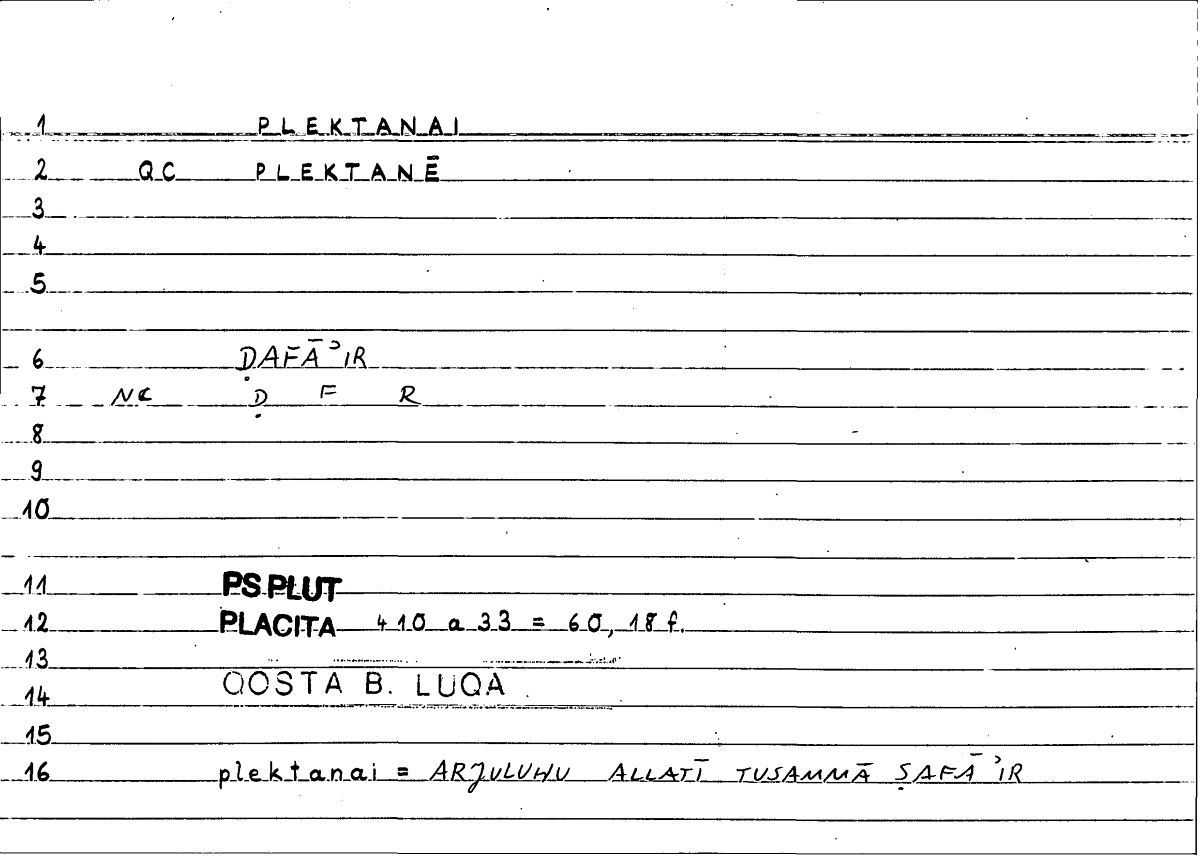 1 PLEKTANAI
2 QC PLEKTANĒ
3
4
5
6 ḌAFĀʾIR
7 NC Ḍ F R
8
9
10
11 PS.PLUT
12 PLACITA 410 a 33 = 60, 18 f.
13
14 QOSTA B. LUQA
15
16 plektanai = ARJULUHU ALLATĪ TUSAMMĀ ṢAFĀʾIR